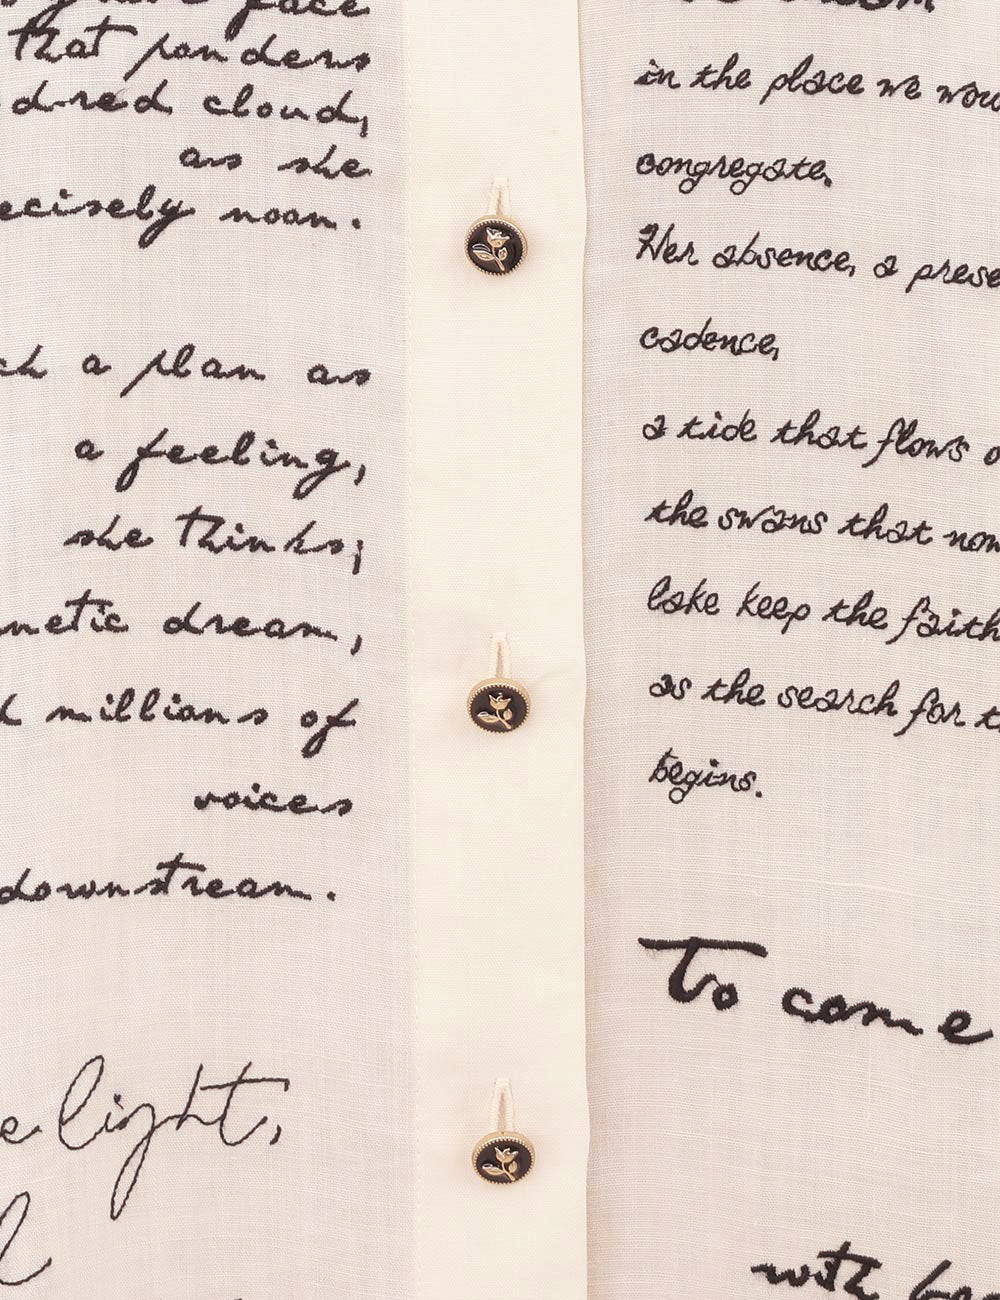 face
that ponders
cloud,
as she
noon.
a plan as
a feeling,
she thinks;
dream,
millions of
voices
downstream.
light,
in the place we
congregate.
Her absence, a
cadence,
a tide that flows
the swans that
lake keep the faith
as the search for
begins.
To come
with